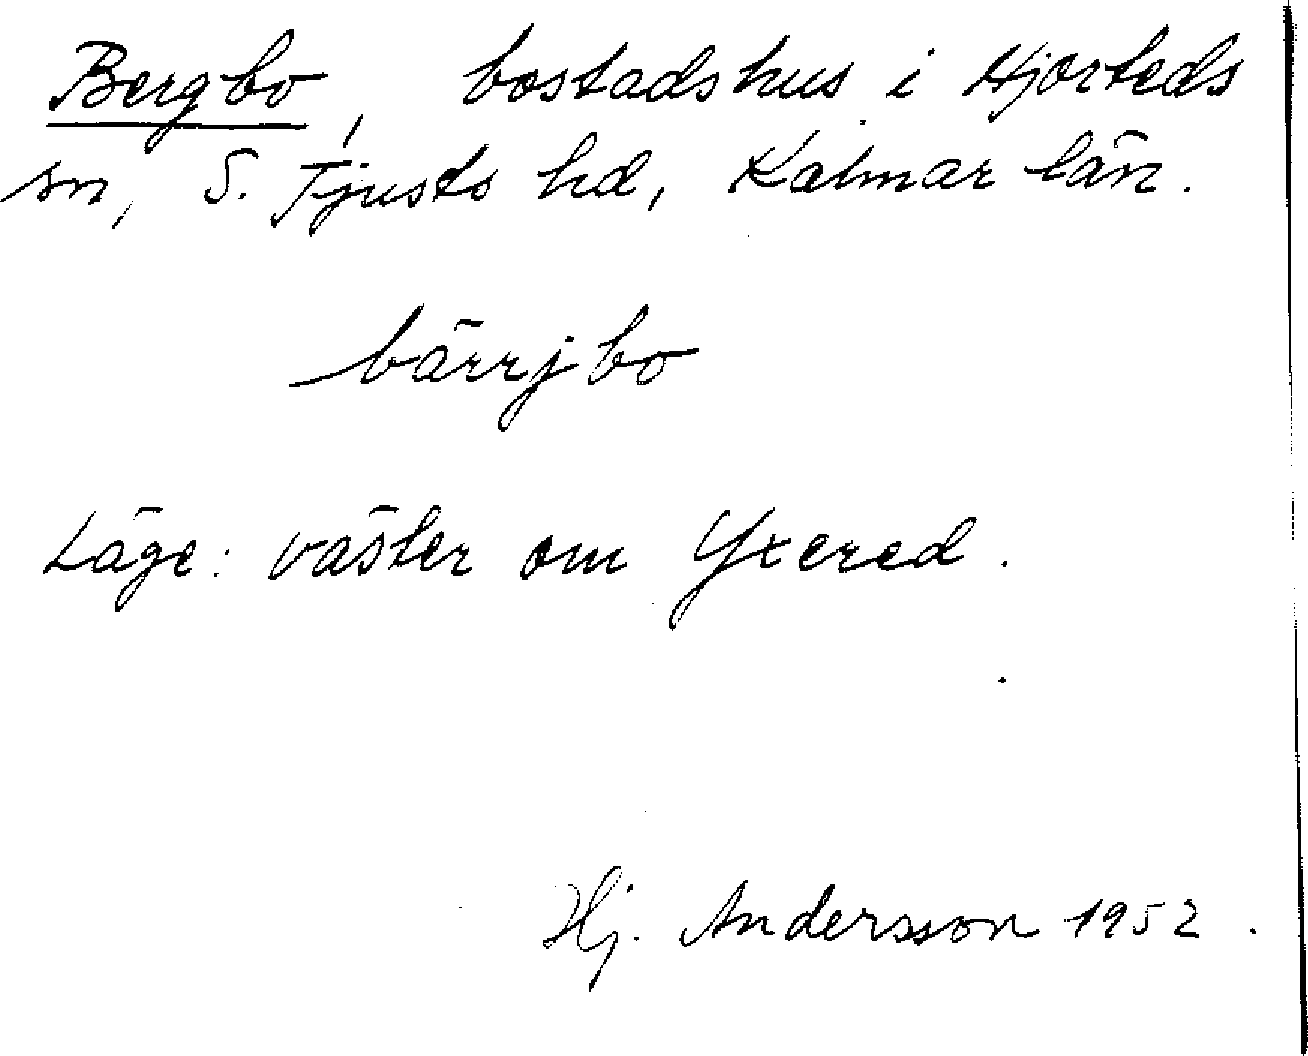 Bergbo, bostadshus i Hjorteds
sn, S. Tjusts hd, Kalmar län.
bärrjbo
Läge: väster om Yxered.
Hj. Andersson 1952.